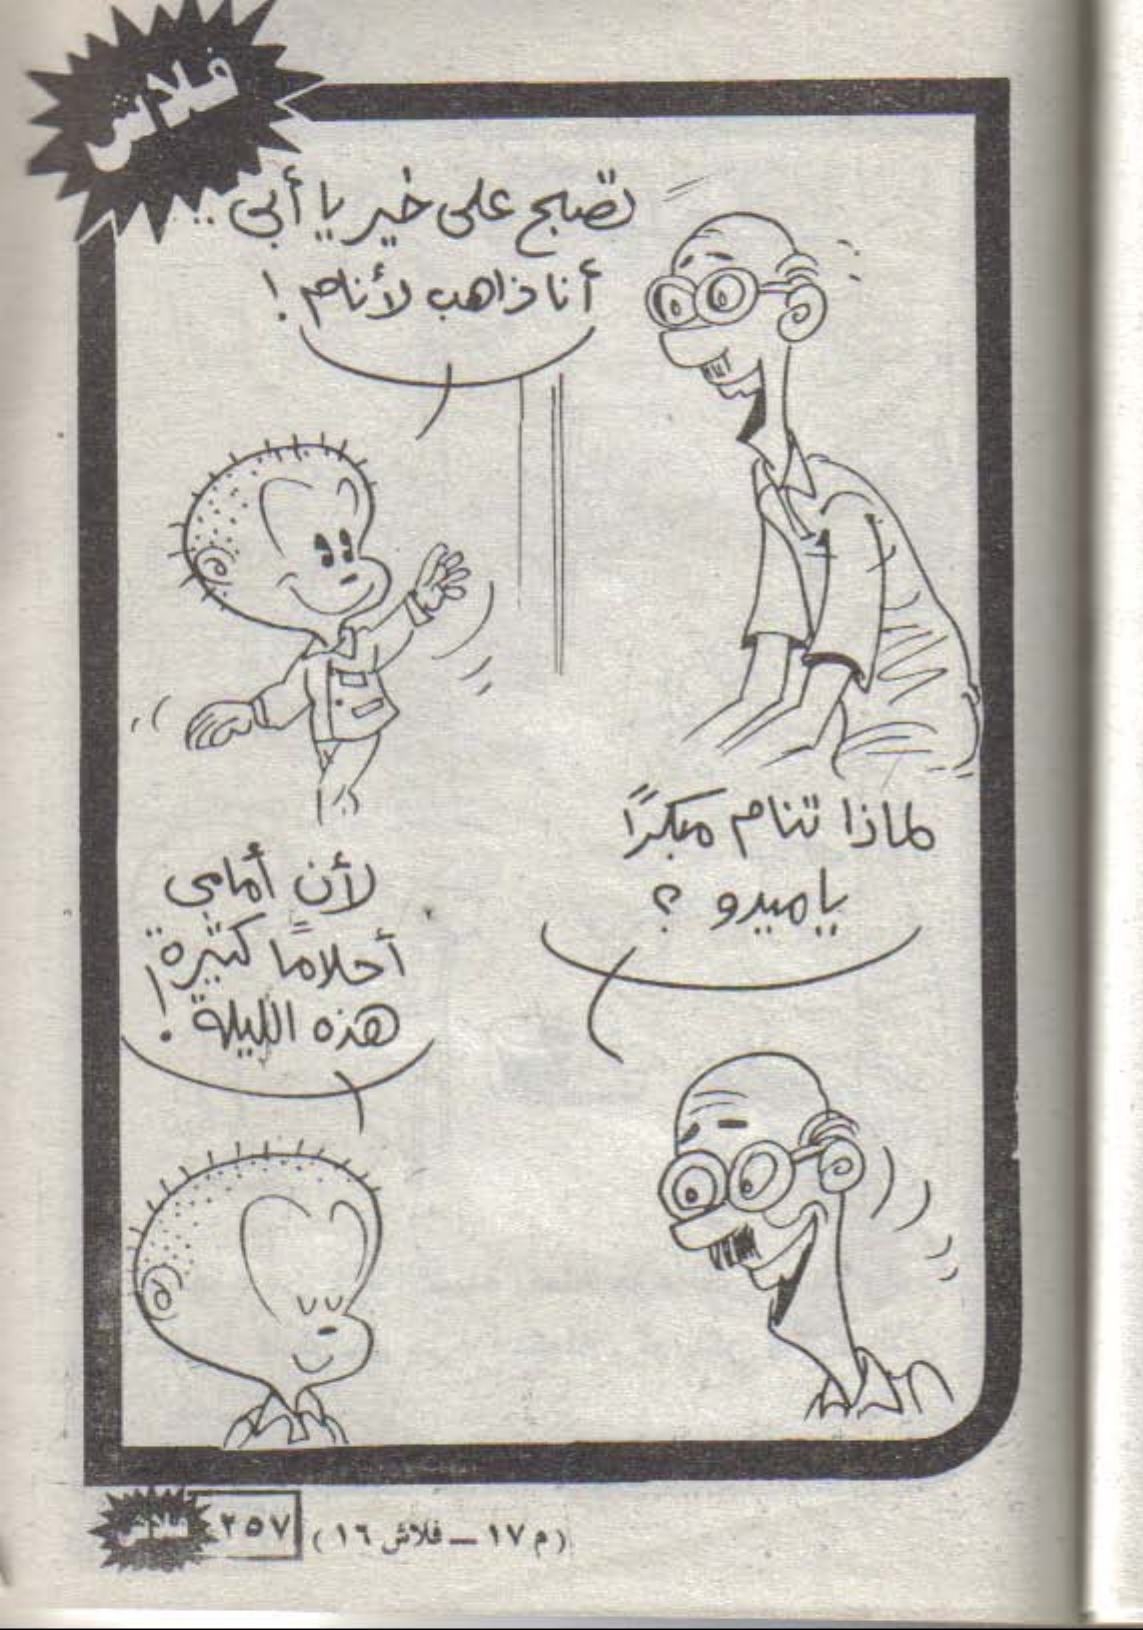 فلاش
تصبح على خير يا أبى ..
أنا ذاهب لأنام !
لماذا تنام مبكرًا
يا ميدو ؟
لأن أمامى
أحلامًا كثيرة
هذه الليلة !
(م ١٧ — فلاش ١٦)
٢٥٧
فلاش